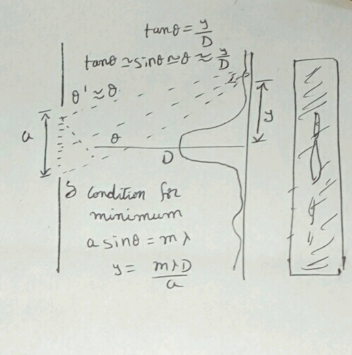 tanθ = y/D
tanθ ≃ sinθ ≃ θ ≈ y/D
θ' ≈ θ
a
θ
y
D
Condition for
minimum
a sinθ = mλ
y = mλD/a